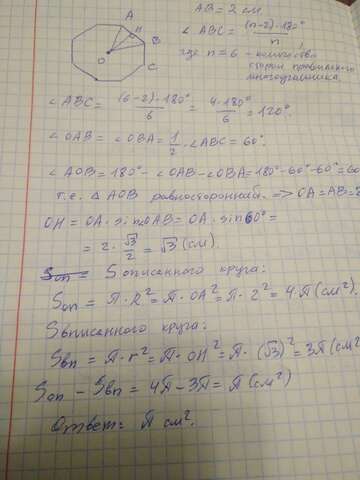 A
H
B
O
C
AB = 2 см
∠ABC = (n-2)·180° / n
где n = 6 - количество
сторон правильного
многоугольника.
∠ABC = (6-2)·180° / 6 = 4·180° / 6 = 120°.
∠OAB = ∠OBA = 1/2 · ∠ABC = 60°.
∠AOB = 180° - ∠OAB - ∠OBA = 180° - 60° - 60° = 60
т.е. △ AOB равносторонний. => OA = AB = 2
OH = OA · sin∠OAB = OA · sin60° =
= 2 · √3/2 = √3 (см).
Sоп = S описанного круга:
Sоп = π · R² = π · OA² = π · 2² = 4π (см²).
S вписанного круга:
Sвп = π · r² = π · OH² = π · (√3)² = 3π (см²
Sоп - Sвп = 4π - 3π = π (см²)
Ответ: π см².